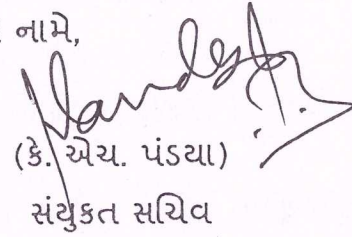 નામે,
(કે. એચ. પંડયા)
સંયુકત સચિવ